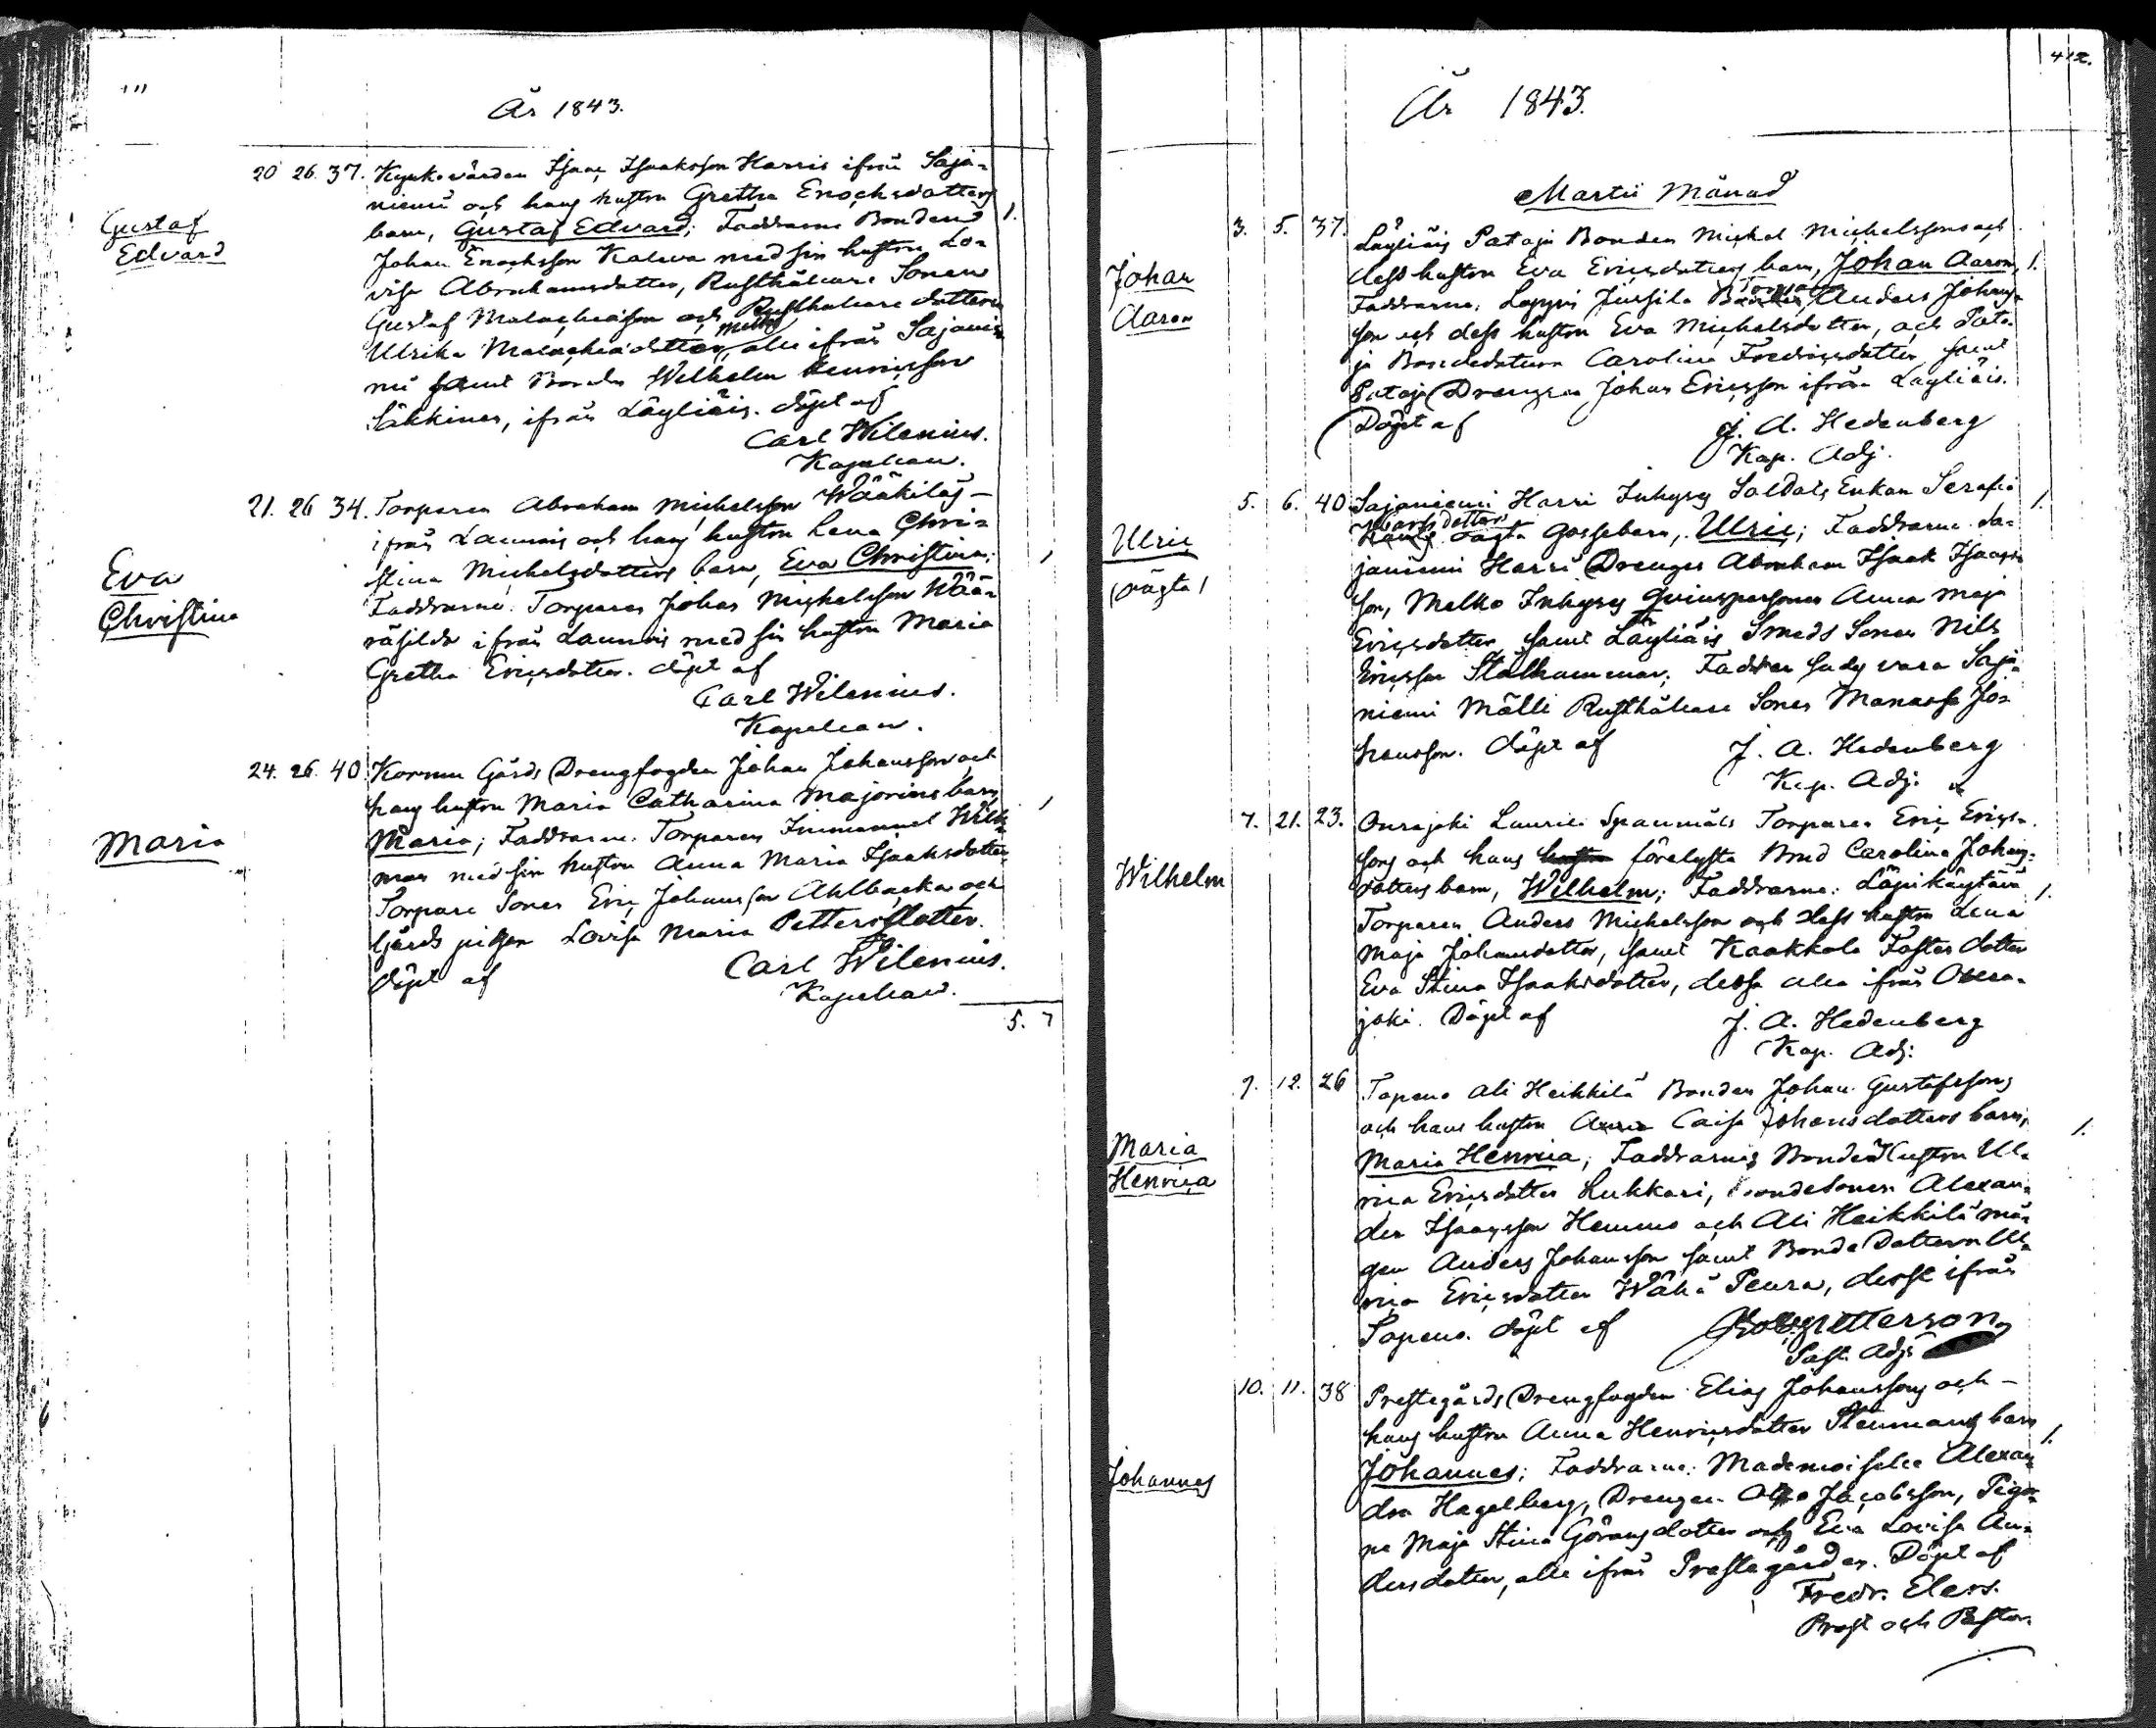 År 1843.
20 26. 37. Kyrkovärden Isaac Isaaksson Harris ifrån Saja-
niemi och hans hustru Gretha Enochsdotters 1.
Gustaf
Edvard
barn, Gustaf Edvard; Faddrarne Bonden
Johan Enochsson Kaleva med sin hustru Lo-
visa Abrahamsdotter, Rusthållare Sonen
Gustaf Malachiasson och Rusthållare dottern
Ulrika Malachiædotter, Mälli alle ifrån Sajanie-
mi samt Bonden Wilhelm Henricsson
Säkkinen, ifrån Läyliäis. döpt af
Carl Wilenius.
Kapellan.
21. 26 34. Torparen Abraham Michelsson Wääkiläs
ifrån Launois och hans hustru Lena Chri-
Eva
Christina
stina Michelsdotters barn, Eva Christina;
Faddrarne. Torparen Johan Michelsson
ifrån Launois med sin hustru Maria
Gretha Ericsdotter. döpt af
Carl Wilenius.
Kapellan.
24. 26. 40. Kormu Gårds Drengfogden Johan Johansson och
hans hustru Maria Catharina Majorins barn,
Maria
Maria; Faddrarne. Torparen Immanuel Wilk-
man med sin hustru Anna Maria Isaaksdotter,
Torpare Sonen Eric Johansson Ahlbacka och
Gårds pigan Lovisa Maria Pettersdotter.
döpt af Carl Wilenius.
Kapellan.
5. 7
412.
År 1843.
Martii Månad
3. 5. 37. Läyliäis Pataja Bonden Michel Michelssons och
Johan
Aaron
dess hustru Eva Ericsdotters barn, Johan Aaron, 1.
Faddrarne. Loppis Jussila Torparen Anders Johans-
son och dess hustru Eva Michelsdotter, och Pata-
ja Bondedottern Carolina Fredricsdotter samt
Pataja Drengen Johan Ericsson ifrån Läyliäis.
Döpt af J. A. Hedenberg
Kap. Adj.
5. 6. 40 Sajaniemi Harri Inhyses Soldats Enkan Serafia 1.
Ulric
(oägta)
dotters oägta Gossebarn, Ulric; Faddrarne. Sa-
janiemi Harri Drengen Abraham Isaak Isaacs-
son, Melko Inhyses Qvinspersonen Anna Maja
Ericsdotter samt Läyliäis Smeds Sonen Nils
Ericsson Stålhammar; Fadren sades vara Saja-
niemi Mälli Rusthållare Sonen Manasse Jo-
hansson. döpt af J. A. Hedenberg
Kap. Adj.
7. 21. 23. Ourajoki Laurila Spannmåls Torparen Eric Erics-
sons och hans förelysta Brud Carolina Johans-
Wilhelm
dotters barn, Wilhelm; Faddrarne: 1.
Torparen Anders Michelsson och dess hustru Lena
Maja Johansdotter, samt Kaakkola Foster dotter
Eva Stina Isaaksdotter, dessa alla ifrån Oura-
joki. Döpt af J. A. Hedenberg
Kap. Adj.
9. 12. 26 Topeno Ali Heikkilä Bonden Johan Gustafssons
och hans hustru Anna Caisa Johansdotters barn, 1.
Maria
Henrica
Maria Henrica; Faddrarne Bonde Hustrun Ul-
rica Ericsdotter Lukkari, Bondesonen Alexan-
der Isaacsson Hemmo och Ali Heikkilä må-
gen Anders Johansson samt Bonde Dottern Ul-
rica Ericsdotter Wähä Peura, desse ifrån
Topeno. döpt af
Past. Adj.
10. 11. 38 Prestegårds Drengfogden Elias Johanssons och
hans hustru Anna Henricsdotter Stenmans barn 1.
Johannes
Johannes; Faddrarne: Mademoiselle Alexan-
dra Hagelberg, Drengen Jacobsson, Pigor-
ne Maja Stina Göransdotter och Eva Lovisa An-
dersdotter, alla ifrån Prestegården. Döpt af
Fredr. Elers.
Prost och Pastor.